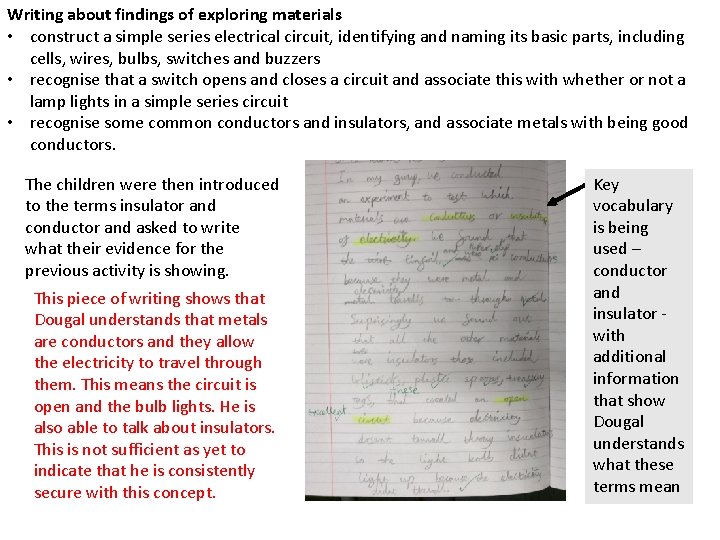 Writing about findings of exploring materials
• construct a simple series electrical circuit, identifying and naming its basic parts, including
cells, wires, bulbs, switches and buzzers
• recognise that a switch opens and closes a circuit and associate this with whether or not a
lamp lights in a simple series circuit
• recognise some common conductors and insulators, and associate metals with being good
conductors.
The children were then introduced
to the terms insulator and
conductor and asked to write
what their evidence for the
previous activity is showing.
This piece of writing shows that
Dougal understands that metals
are conductors and they allow
the electricity to travel through
them. This means the circuit is
open and the bulb lights. He is
also able to talk about insulators.
This is not sufficient as yet to
indicate that he is consistently
secure with this concept.
In my group, we conducted
an experiment to test which
materials are conductors or insulators
of electricity. We found that
the tinfoil, and conductors
because they were metal and
electricity
metal travells through metal
Suprisingly we found out
that all the other materials
were insulators these included
plastic spoons,
these
tags, and created an open
excellent
circuit because electricity
dosent travell throug insulators
so the light bulb didnt
light up because the electricity
didnt travel.
Key
vocabulary
is being
used –
conductor
and
insulator -
with
additional
information
that show
Dougal
understands
what these
terms mean